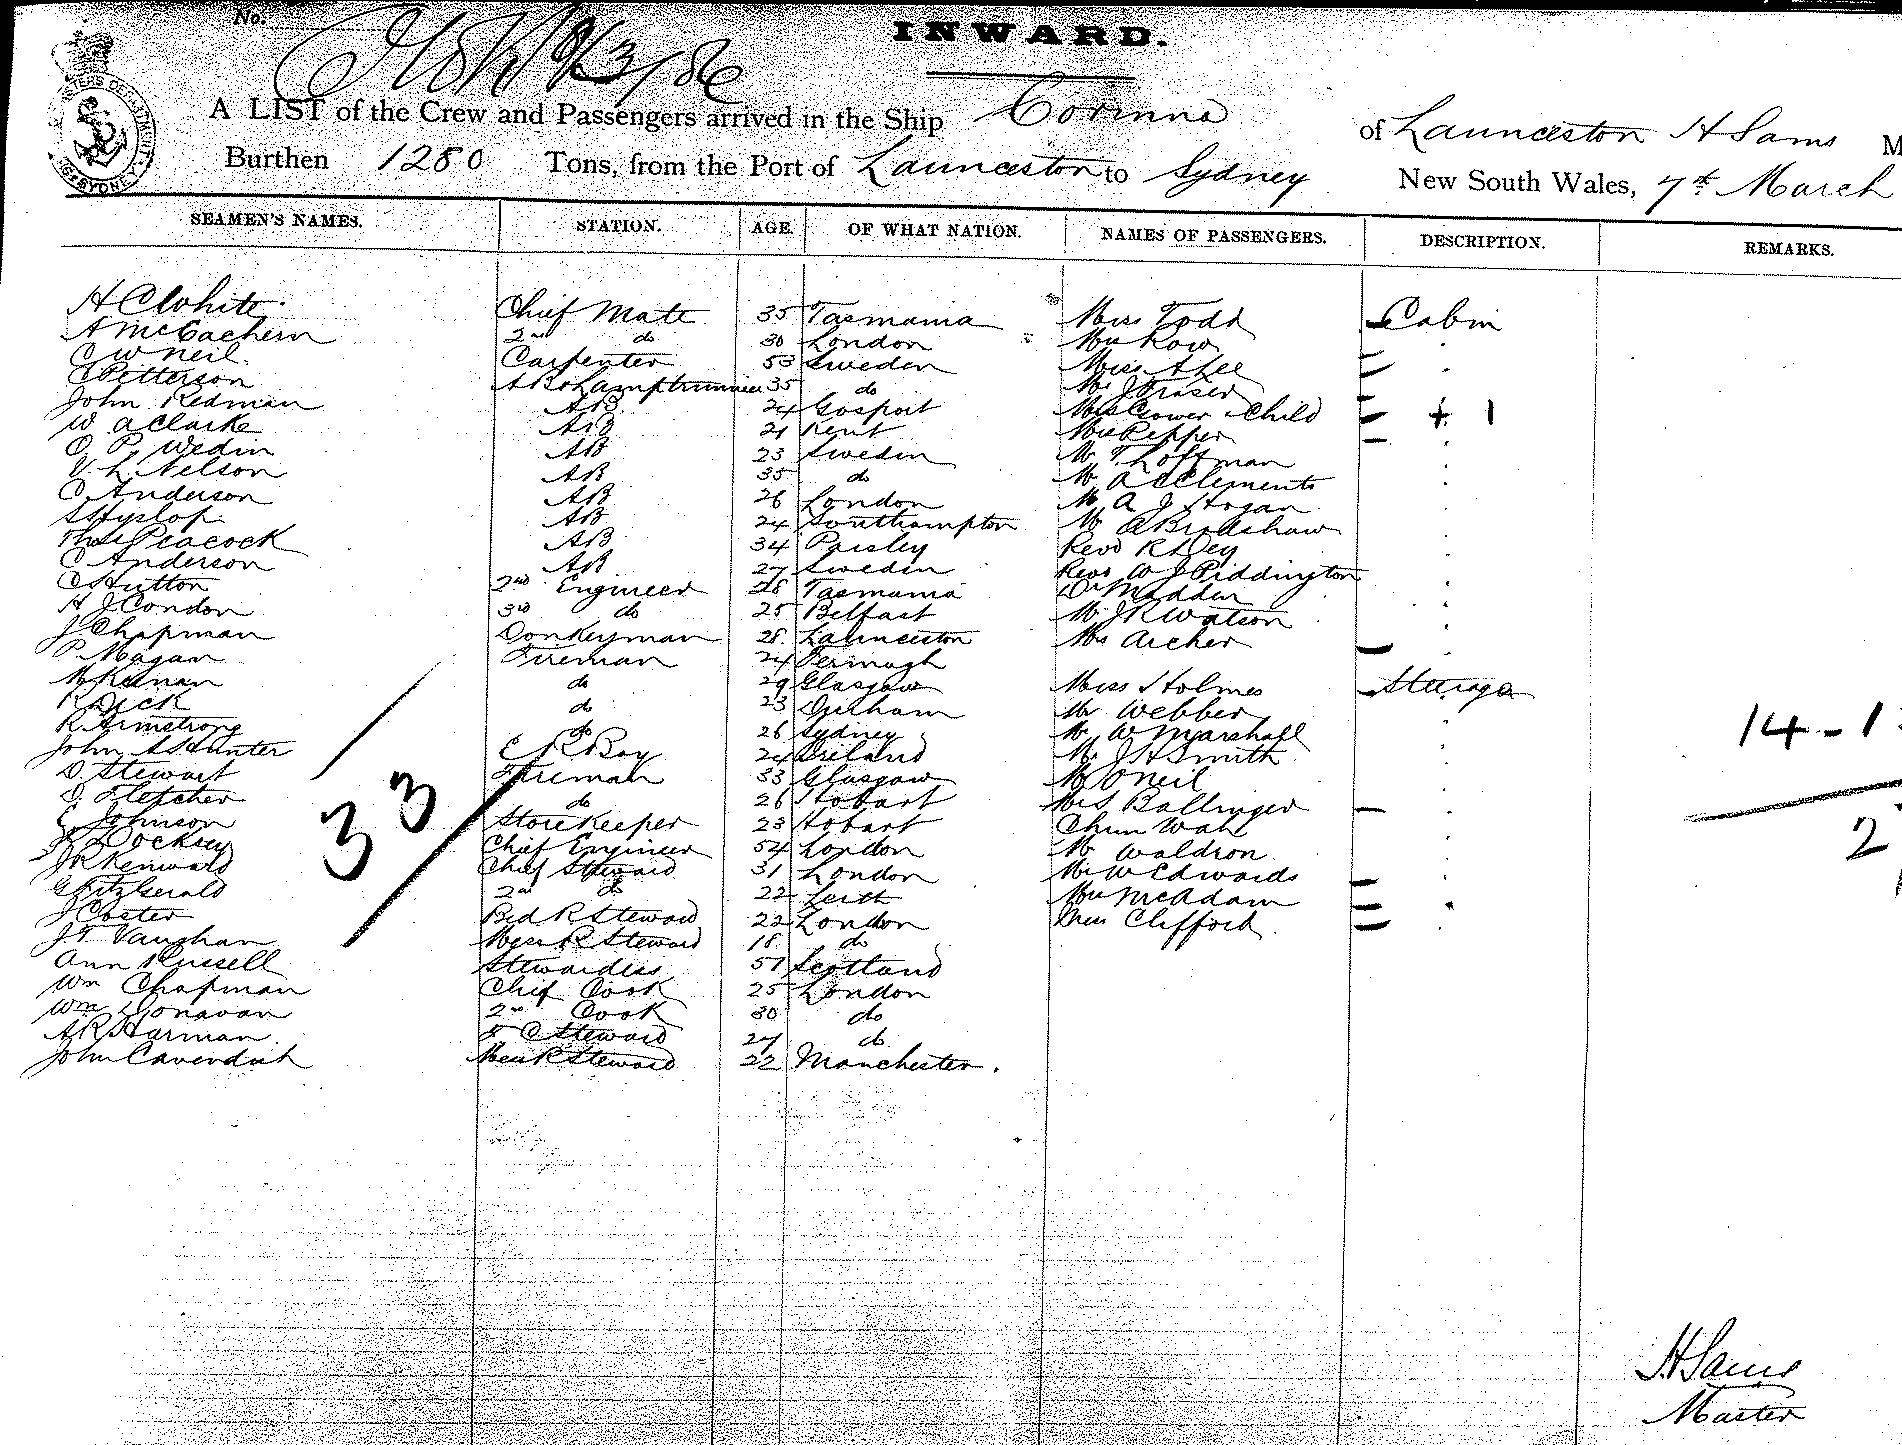 No.
INWARD.
A LIST of the Crew and Passengers arrived in the Ship Corinna of Launceston H Sams M
Burthen 1280 Tons, from the Port of Launceston to Sydney New South Wales, 7th March
SEAMEN'S NAMES. STATION. AGE. OF WHAT NATION. NAMES OF PASSENGERS. DESCRIPTION. REMARKS.
H C White Chief Mate 35 Tasmania Miss Todd Cabin
A McEachern 2nd do 30 London Mrs Row
C W Neil Carpenter 53 Sweden Miss A Lee
C Petterson AB & Lamptrimmer 35 do Mr J Fraser
John Redman AB 24 Gosport Mrs Crower & Child + 1
W A Clarke AB 21 Kent Mrs Pepper
O P Wedin AB 23 Sweden Mr T Loffman
V L Nelson AB 35 do Mr A Clements
C Anderson AB 26 London Mr A J Hogan
S Hyslop AB 24 Southampton Mr A Bradshaw
Peacock AB 34 Paisley Revd R Dey
C Anderson AB 27 Sweden Revd W J Piddington
C Hutton 2nd Engineer 28 Tasmania Dr Madden
H J Condon 3rd do 25 Belfast Mr J R Watson
J Chapman Donkeyman 28 Launceston Mrs Archer
P Magan Fireman 24 Fermagh
M Keenan do 29 Glasgow Miss Holmes Steerage
R Dick do 23 Durham Mr Webber
R Armstrong do 26 Sydney Mr W Marshall
John A S Hunter E R Boy 24 Ireland Mr J H Smith
D Stewart Fireman 33 Glasgow Mr O'Neil
D Fletcher do 26 Hobart Mrs Ballinger
Johnson Storekeeper 23 Hobart Chum Wah
Docksey Chief Engineer 54 London Mr Waldron
J R Kenward Chief Steward 31 London Mrs W Edwards
G Fitzgerald 2nd do 22 Leith Mrs McAdam
J Coster Bed R Steward 22 London Miss Clifford
J T Vaughan Mess R Steward 18 do
Ann Russell Stewardess 51 Scotland
Wm Chapman Chief Cook 25 London
Wm Donavan 2nd Cook 30 do
A R Harman F C Steward 27 do
John Cavendish Mess R Steward 22 Manchester.
33
14 - 1
2
H Sams
Master